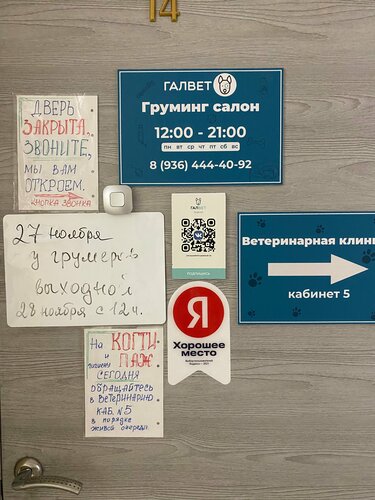 14
ГАЛВЕТ
Груминг салон
12:00 - 21:00
пн вт ср чт пт сб вс
8 (936) 444-40-92
ДВЕРЬ
ЗАКРЫТА,
ЗВОНИТЕ,
МЫ ВАМ
ОТКРОЕМ.
КНОПКА ЗВОНКА
ГАЛВЕТ
ПОДПИШИСЬ
27 ноября
у грумеров
выходной
28 ноября с 12 ч.
Ветеринарная клини
кабинет 5
Я
Хорошее
место
На КОГТИ
и
ПАЖ
СЕГОДНЯ
ОБРАЩАЙТЕСЬ
В ВЕТЕРИНАРИЮ
КАБ. №5
В ПОРЯДКЕ
ЖИВОЙ ОЧЕРЕДИ.